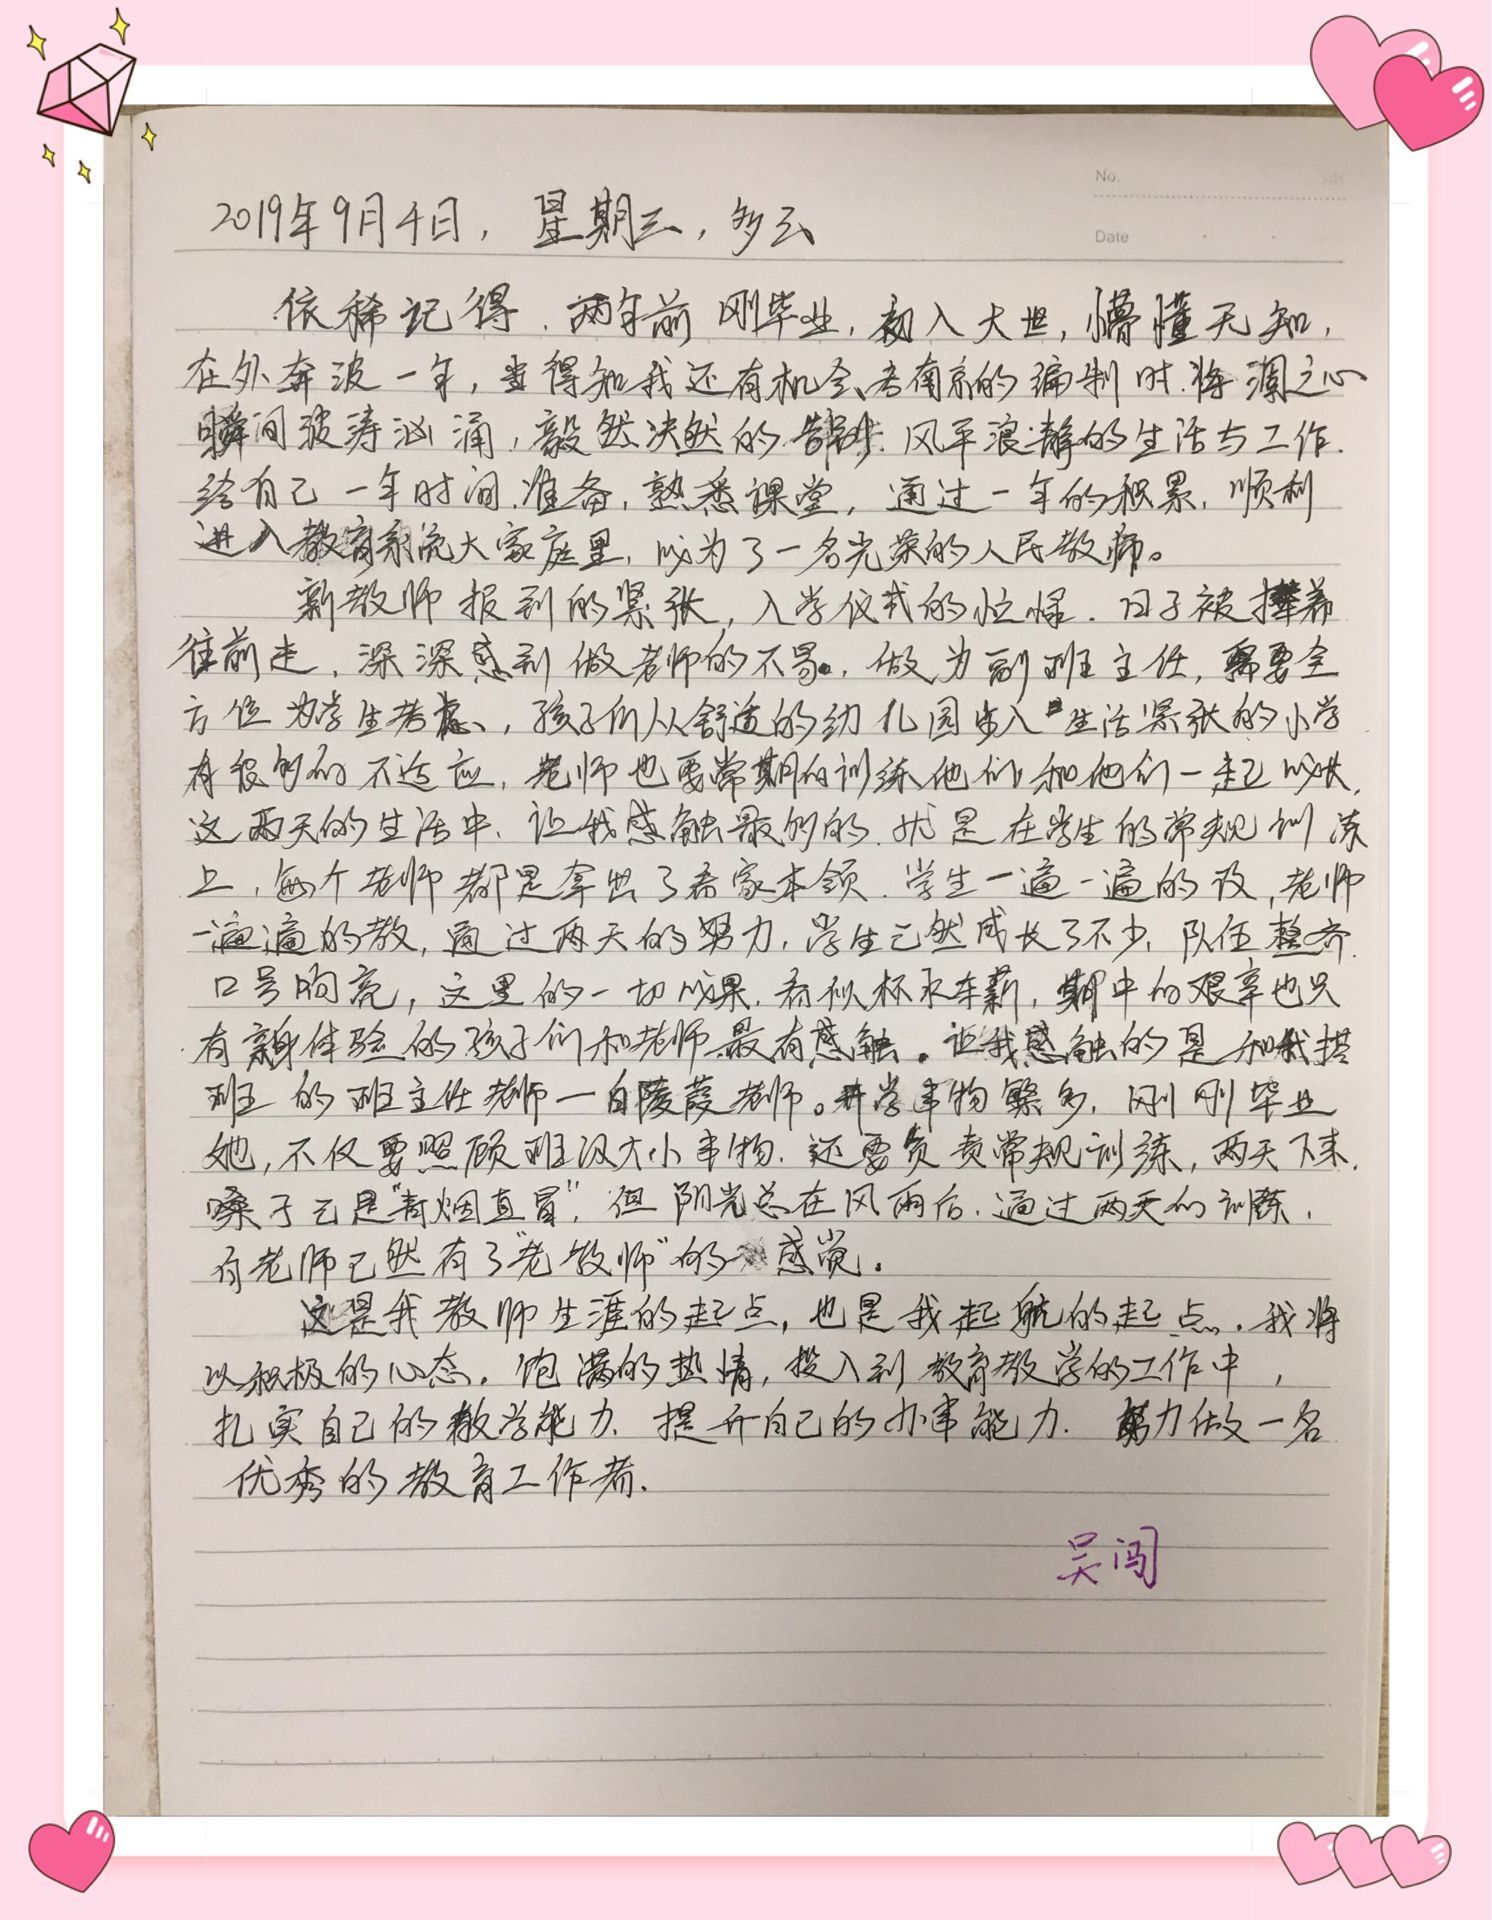 No.
Date
2019年9月4日，星期三，多云
依稀记得，两年前刚毕业，初入大世，懵懂无知，
在外奔波一年，当得知我还有机会考南京的编制时，将澜之心
瞬间波涛汹涌，毅然决然的告别，风平浪静的生活与工作，
给自己一年时间，准备，熟悉课堂，通过一年的积累，顺利
进入教育系统大家庭里，成为了一名光荣的人民教师。
新教师报到的紧张，入学仪式的忙碌，日子被撵着
往前走，深深感到做老师的不易。做为副班主任，需要全
方位为学生考虑，孩子们从舒适的幼儿园步入生活紧张的小学
有很多的不适应，老师也要常期的训练他们和他们一起成长，
这两天的生活中，让我感触最多的，就是在学生的常规训练
上，每个老师都是拿出了看家本领，学生一遍一遍的改，老师
一遍遍的教，通过两天的努力，学生已然成长了不少，队伍整齐
口号响亮，这里的一切成果，看似杯水车薪，期中的艰辛也只
有亲身体验的孩子们和老师最有感触。让我感触的是和我搭
班的班主任老师—白陵葭老师。开学事物繁多，刚刚毕业
她，不仅要照顾班级大小事物，还要负责常规训练，两天下来，
嗓子已是“青烟直冒”，但阳光总在风雨后，通过两天的训练，
白老师已然有了“老教师”的感觉。
这是我教师生涯的起点，也是我起航的起点，我将
以积极的心态，饱满的热情，投入到教育教学的工作中，
扎实自己的教学能力，提升自己的办事能力，努力做一名
优秀的教育工作者.
吴闯